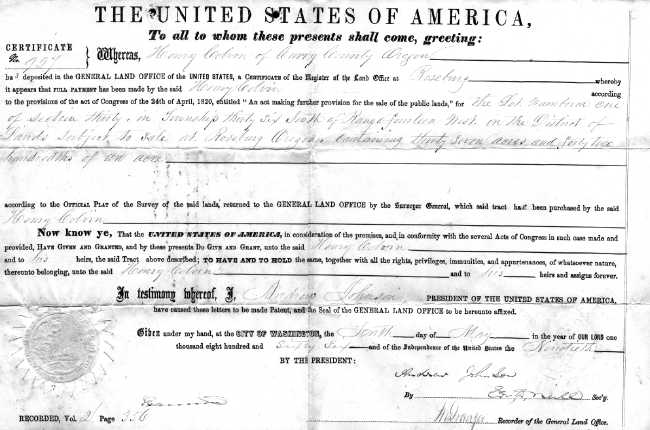 THE UNITED STATES OF AMERICA,
To all to whom these presents shall come, greeting:
CERTIFICATE
No. 957
Whereas, Henry Colvin of Curry County Oregon
has deposited in the GENERAL LAND OFFICE of the UNITED STATES, a CERTIFICATE of the Register of the Land Office at Roseburg whereby
it appears that FULL PAYMENT has been made by the said Henry Colvin according
to the provisions of the act of Congress of the 24th of April, 1820, entitled "An act making further provision for the sale of the public lands," for The Lot numbered one
of Section thirty, in Township thirty six South of Range fourteen West in the District of
Lands subject to sale at Roseburg Oregon containing thirty seven acres and forty
hundredths of an acre
according to the OFFICIAL PLAT of the Survey of the said lands, returned to the GENERAL LAND OFFICE by the Surveyor General, which said tract has been purchased by the said
Henry Colvin
Now know ye, That the UNITED STATES OF AMERICA, in consideration of the premises, and in conformity with the several Acts of Congress in such case made and
provided, HAVE GIVEN AND GRANTED, and by these presents DO GIVE AND GRANT, unto the said Henry Colvin
and to his heirs, the said Tract above described; TO HAVE AND TO HOLD the same, together with all the rights, privileges, immunities, and appurtenances, of whatsoever nature,
thereunto belonging, unto the said Henry Colvin and to his heirs and assigns forever.
In testimony whereof, I, Andrew Johnson PRESIDENT OF THE UNITED STATES OF AMERICA,
have caused these letters to be made Patent, and the Seal of the GENERAL LAND OFFICE to be hereunto affixed.
Given under my hand, at the CITY OF WASHINGTON, the Tenth day of May in the year of OUR LORD one
thousand eight hundred and Sixty Six and of the Independence of the United States the Ninetieth
BY THE PRESIDENT:
Andrew Johnson
By Sec'y.
RECORDED, Vol. 2 Page 356
Recorder of the General Land Office.